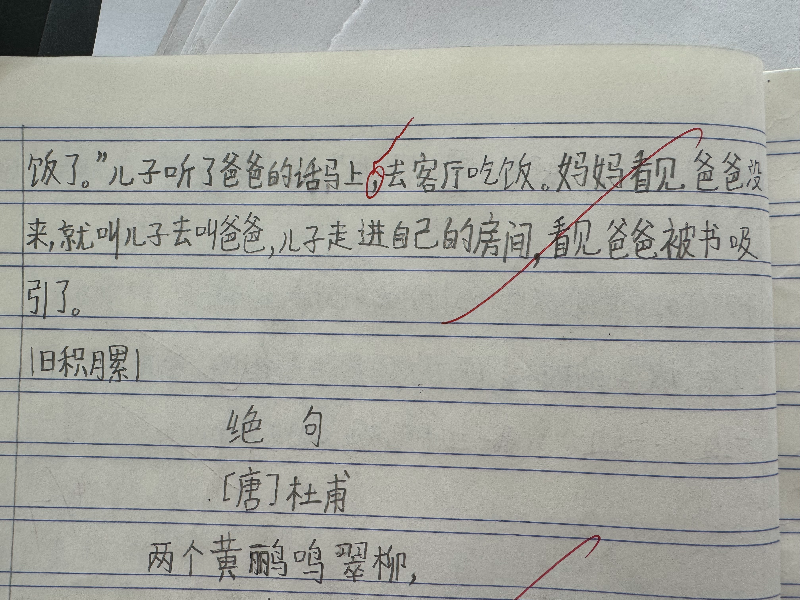 饭了。”儿子听了爸爸的话马上,去客厅吃饭。妈妈看见爸爸没
来,就叫儿子去叫爸爸,儿子走进自己的房间,看见爸爸被书吸
引了。
|日积月累|
绝 句
[唐]杜甫
两个黄鹂鸣翠柳,